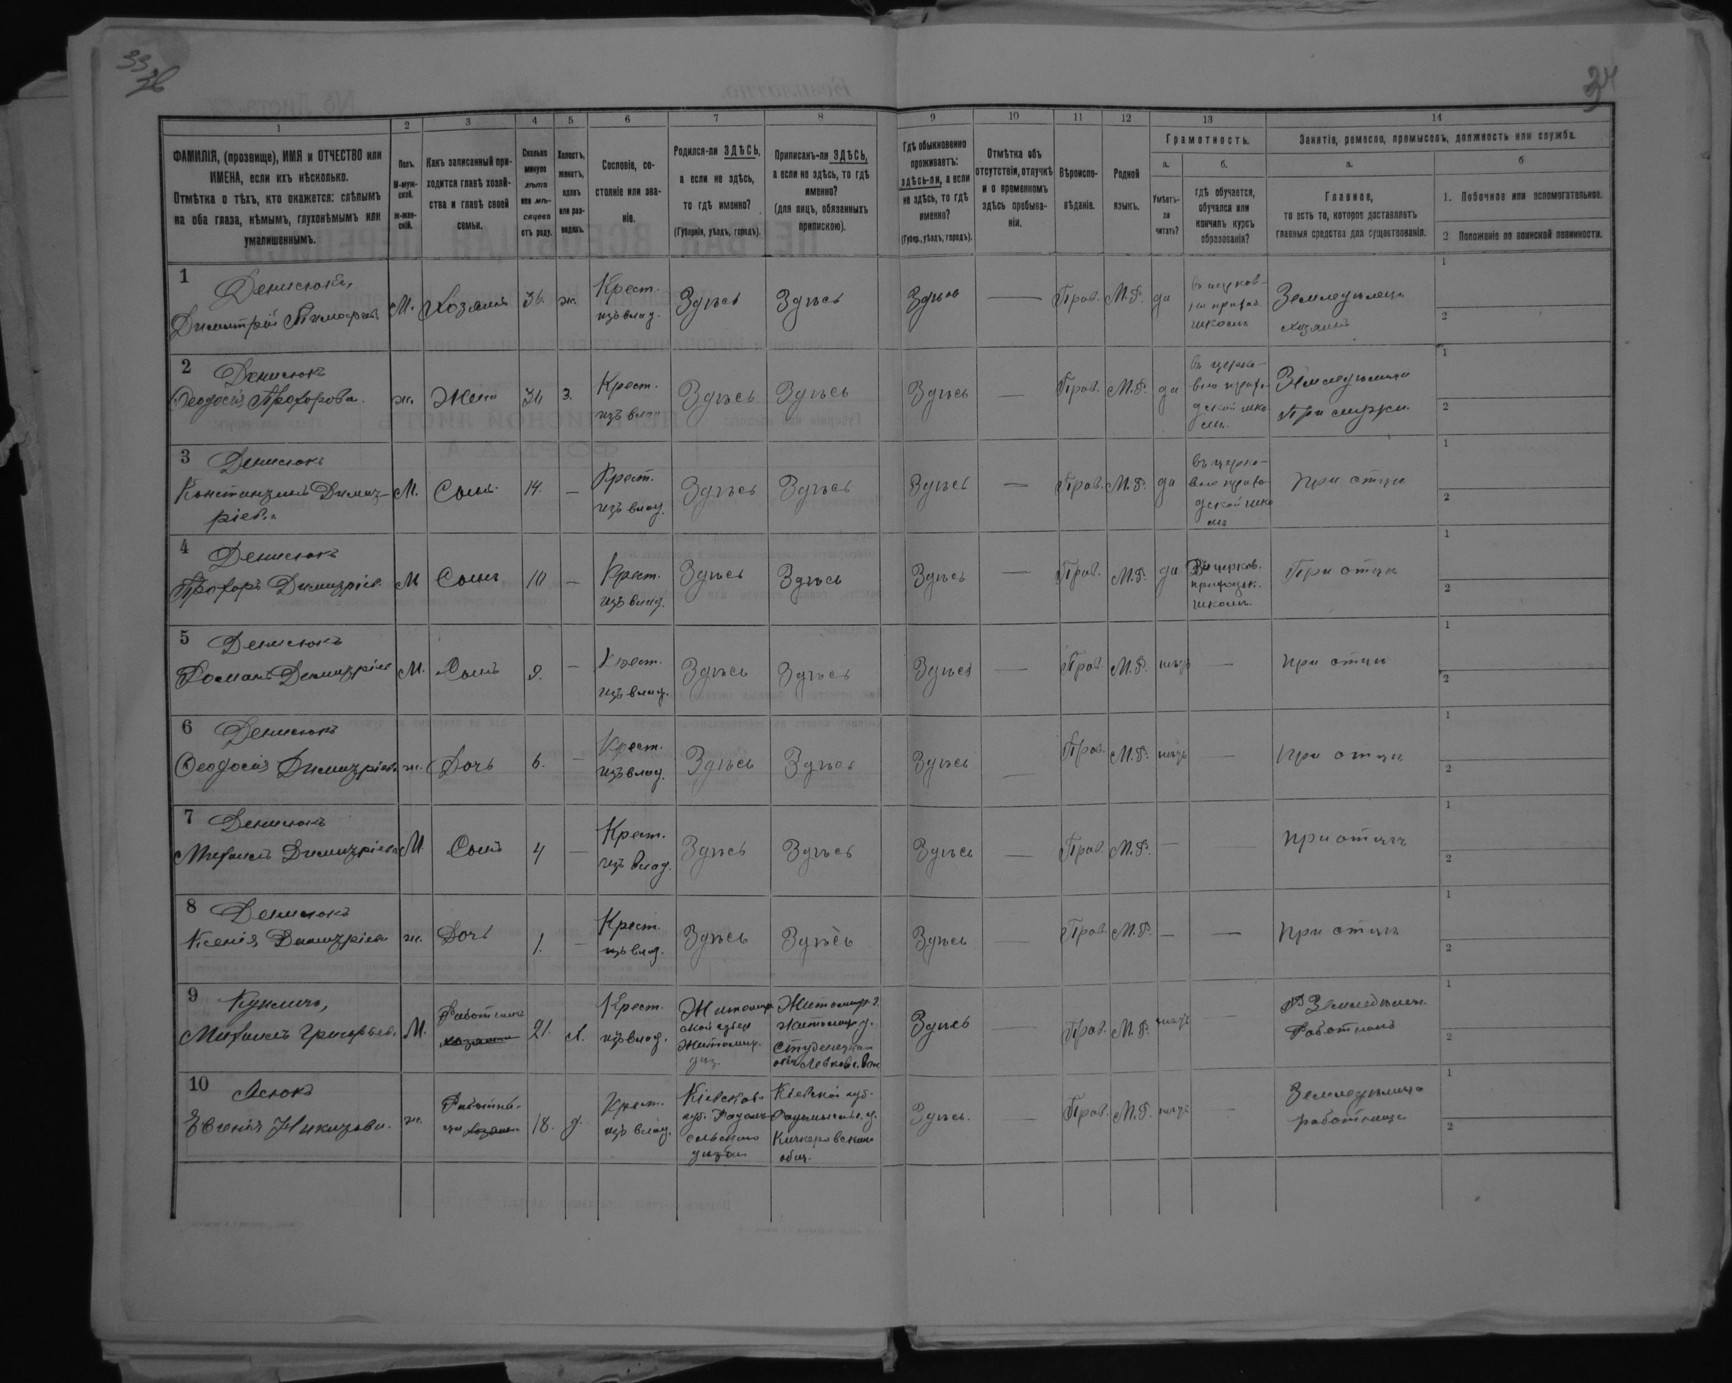 33
36
34
1
2
3
4
5
6
7
8
9
10
11
12
13
14
ФАМИЛІЯ, (прозвище), ИМЯ и ОТЧЕСТВО или
ИМЕНА, если ихъ нѣсколько.
Отмѣтка о тѣхъ, кто окажется: слѣпымъ
на оба глаза, нѣмымъ, глухонѣмымъ или
умалишеннымъ.
Полъ.
М-муж-
ской.
ж-жен-
скій.
Какъ записанный при-
ходится главѣ хозяй-
ства и главѣ своей
семьи.
Сколько
минуло
лѣтъ
или мѣ-
сяцевъ
отъ роду.
Холостъ,
женатъ,
вдовъ
или раз-
веденъ.
Сословіе, со-
стояніе или зва-
ніе.
Родился-ли ЗДѢСЬ,
а если не здѣсь,
то гдѣ именно?
(Губернія, уѣздъ, городъ).
Приписанъ-ли ЗДѢСЬ,
а если не здѣсь, то гдѣ
именно?
(для лицъ, обязанныхъ
припискою).
Гдѣ обыкновенно
проживаетъ:
здѣсь-ли, а если
не здѣсь, то гдѣ
именно?
(Губер., уѣздъ, городъ).
Отмѣтка объ
отсутствіи, отлучкѣ
и о временномъ
здѣсь пребыва-
ніи.
Вѣроиспо-
вѣданіе.
Родной
языкъ.
Грамотность.
а.
Умѣетъ-
ли
читать?
б.
гдѣ обучается,
обучался или
кончилъ курсъ
образованія?
Занятіе, ремесло, промыселъ, должность или служба.
а.
Главное,
то есть то, которое доставляетъ
главныя средства для существованія.
б
1. Побочное или вспомогательное.
2 Положеніе по воинской повинности.
1 Денисюкъ,
Димитрій М. Хозяинъ 36. ж. Крест.
изъ влад. Здѣсь Здѣсь Здѣсь — Прав. М.Р. да
школѣ Земледѣлецъ
хозяинъ 1
2
2 Денисюкъ
Ѳеодосія Прохорова. ж. Жена 34 З. Крест.
изъ влад. Здѣсь Здѣсь Здѣсь — Прав. М.Р. да въ церко-
вно приход
дской шко
лѣ. Земледѣлица
При мужѣ. 1
2
3 Денисюкъ
Константинъ Димит-
ріевъ М. Сынъ 14. — Крест.
изъ влад. Здѣсь Здѣсь Здѣсь — Прав. М.Р. да въ церко-
вно прихо
дской шко
лѣ При отцѣ 1
2
4 Денисюкъ
Прохоръ Димитріев. М Сынъ 10 — Крест.
изъ влад. Здѣсь Здѣсь Здѣсь — Прав. М.Р. да Въ церков.
приходск.
школѣ. При отцѣ 1
2
5 Денисюкъ
Романъ Димитріев М. Сынъ 9. — Крест.
изъ влад. Здѣсь Здѣсь Здѣсь — Прав. М.Р. нѣтъ — при отцѣ 1
2
6 Денисюкъ
Ѳеодосія Димитріева ж. Дочь 6. — Крест.
изъ влад. Здѣсь Здѣсь Здѣсь — Прав. М.Р. нѣтъ — при отцѣ 1
2
7 Денисюкъ
Михаилъ Димитріевъ М Сынъ 4 — Крест.
изъ влад. Здѣсь Здѣсь Здѣсь — Прав. М.Р. — — при отцѣ 1
2
8 Денисюкъ
Ксенія Димитріев ж. Дочь 1. — Крест.
изъ влад. Здѣсь Здѣсь Здѣсь — Прав. М.Р. — — при отцѣ 1
2
9
Михаилъ Григорьев. М. Работникъ
хозяина 21. х. Крест.
изъ влад. Житомир
Житомир. Житомир. г.
Житомир. у. Здѣсь — Прав. М.Р. нѣтъ — Земледѣлец.
Работникъ 1
2
10
Евгенія Никитова. ж. Работни-
ца хозяина 18. д. Крест.
изъ влад. Кіевской
губ. Радомы-
сльскаго
уѣзда Кіевской губ.
Радомысльск. у.
общ. Здѣсь. — Прав. М.Р. нѣтъ — Земледѣлица
работница 1
2